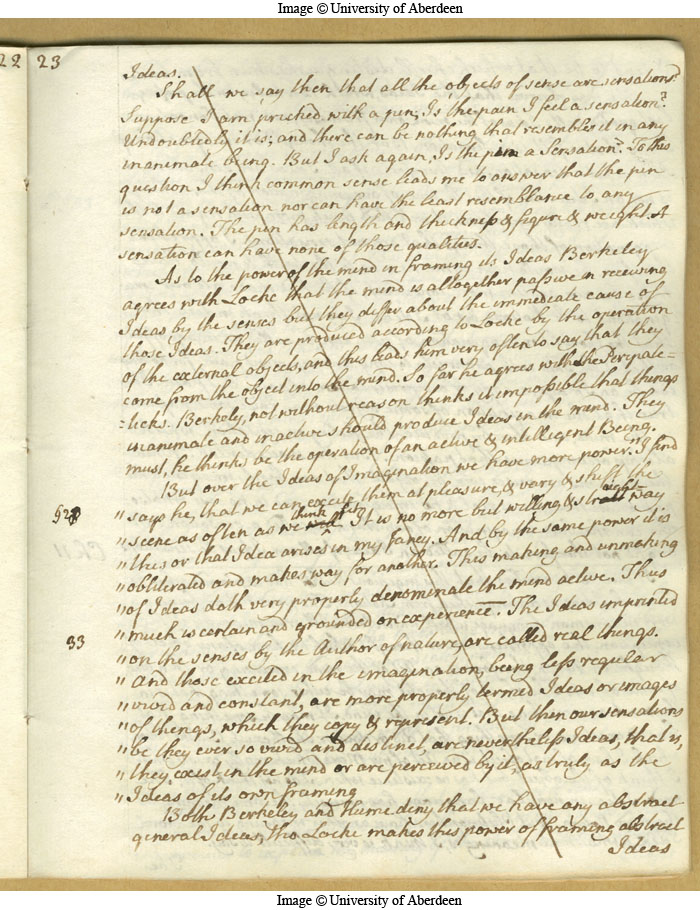 Image © University of Aberdeen
22 23
Ideas.
Shall we say then that all the objects of sense are sensations?
Suppose I am pricked with a pin; Is the pain I feel a sensation?
Undoubtedly it is; and there can be nothing that resembles it in any
inanimate being. But I ask again, Is the pin a Sensation? To this
question I think common sense leads me to answer that the pin
is not a sensation nor can have the least resemblance to any
sensation. The pin has length and thickness & figure & weight. A
sensation can have none of those qualities.
As to the power of the mind in framing its Ideas Berkeley
agrees with Locke that the mind is altogether passive in receiving
Ideas by the senses but they differ about the immediate cause of
those Ideas. They are produced according to Locke by the operation
of the external objects, and this leads him very often to say that they
come from the object into the mind. So far he agrees with the Peripate-
-ticks. Berkely, not without reason thinks it impossible that things
inanimate and inactive should produce Ideas in the mind. They
must, he thinks be the operation of an active & intelligent Being.
But over the Ideas of Imagination we have more power. "I find
§28 " says he, that we can excite them at pleasure, & vary & shift the
" scene as often as we think fit. It is no more but willing & straight way
" this or that Idea arises in my fancy. And by the same power it is
" obliterated and makes way for another. This making and unmaking
" of Ideas doth very properly denominate the mind active. Thus
" much is certain and grounded on experience. The Ideas imprinted
33 " on the senses by the Author of nature, are called real things.
" And those excited in the imagination, being less regular
" vivid and constant, are more properly termed Ideas or images
" of things, which they copy & represent. But then our sensations
" be they ever so vivid and distinct, are nevertheless Ideas, that is,
" they exist in the mind or are perceived by it, as truly as the
" Ideas of its own framing
Both Berkeley and Hume deny that we have any abstract
general Ideas, tho Locke makes this power of framing abstract
Ideas
Image © University of Aberdeen